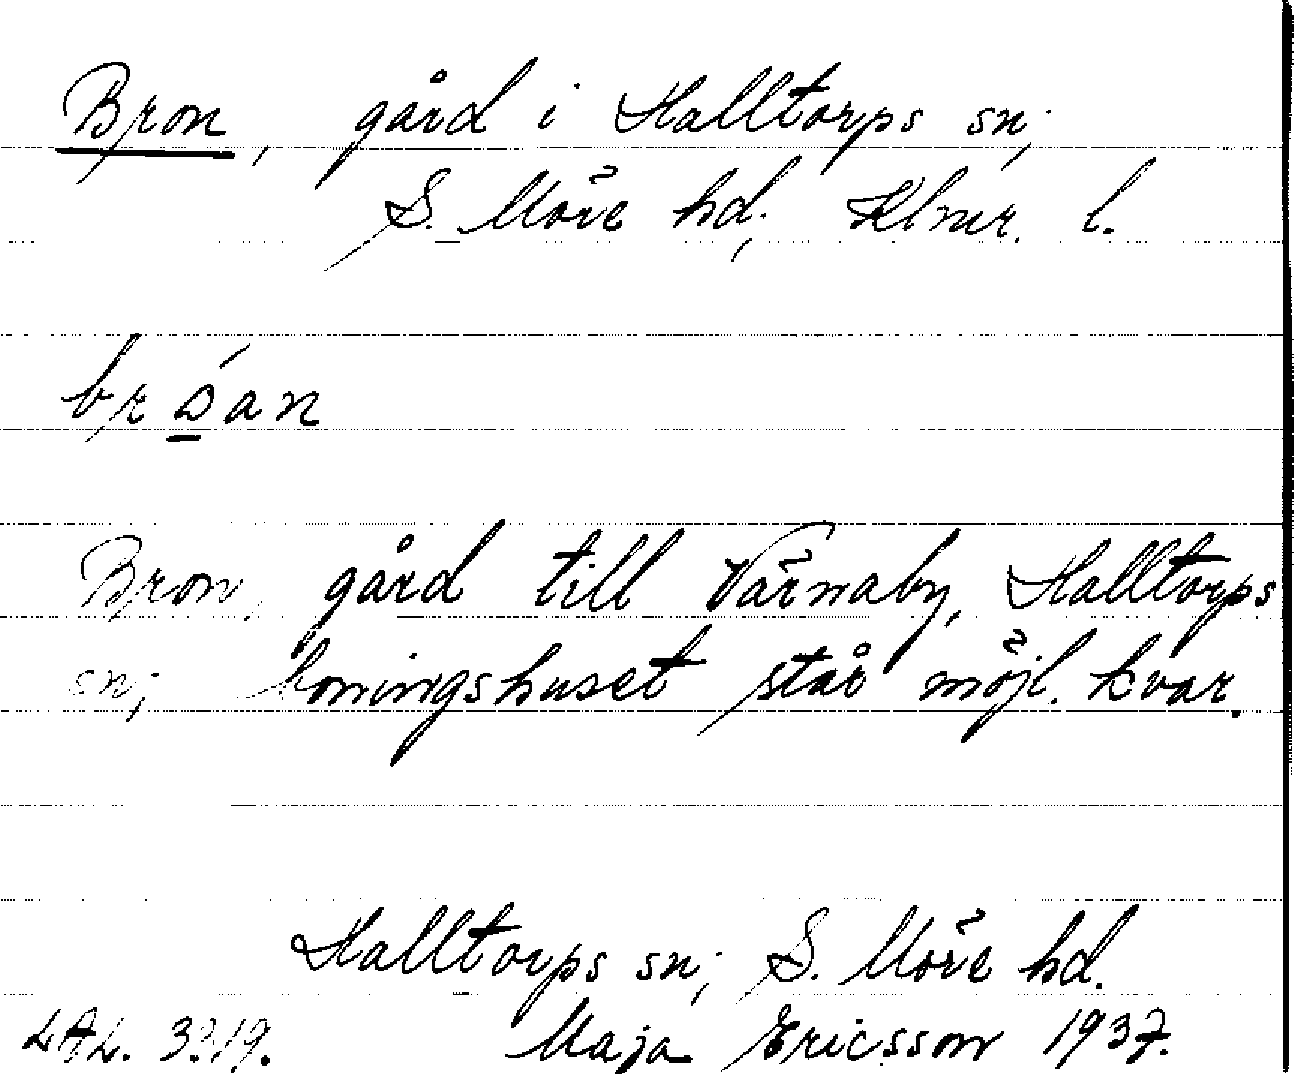 Bron, gård i Halltorps sn;
S. Möre hd; Klmr. l.
br ó̲ a n
Bron, gård till Värnaby, Halltorps
sn; boningshuset står möjl. kvar.
Halltorps sn; S. Möre hd.
LAL. 3319. Maja Ericsson 1937.